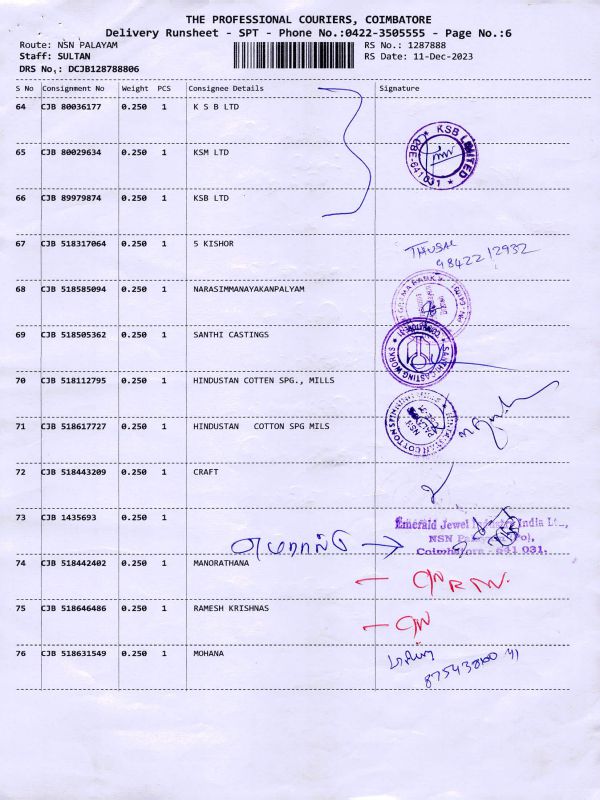 THE PROFESSIONAL COURIERS, COIMBATORE
Delivery Runsheet - SPT - Phone No.:0422-3505555 - Page No.:6
Route: NSN PALAYAM RS No.: 1287888
Staff: SULTAN RS Date: 11-Dec-2023
DRS No,: DCJB128788806
S No Consignment No Weight PCS Consignee Details Signature
64 CJB 80036177 0.250 1 K S B LTD
KSB LIMITED
CBE-641 031
65 CJB 80029634 0.250 1 KSM LTD
66 CJB 89979874 0.250 1 KSB LTD
67 CJB 518317064 0.250 1 S KISHOR
98422 12932
68 CJB 518585094 0.250 1 NARASIMMANAYAKANPALYAM
69 CJB 518505362 0.250 1 SANTHI CASTINGS
SANTHI CASTING WORKS
70 CJB 518112795 0.250 1 HINDUSTAN COTTEN SPG., MILLS
71 CJB 518617727 0.250 1 HINDUSTAN COTTON SPG MILS
COTTON
72 CJB 518443209 0.250 1 CRAFT
73 CJB 1435693 0.250 1
Emerald Jewel India Ltd.,
NSN
Coimbatore - 641 031.
74 CJB 518442402 0.250 1 MANORATHANA
75 CJB 518646486 0.250 1 RAMESH KRISHNAS
76 CJB 518631549 0.250 1 MOHANA